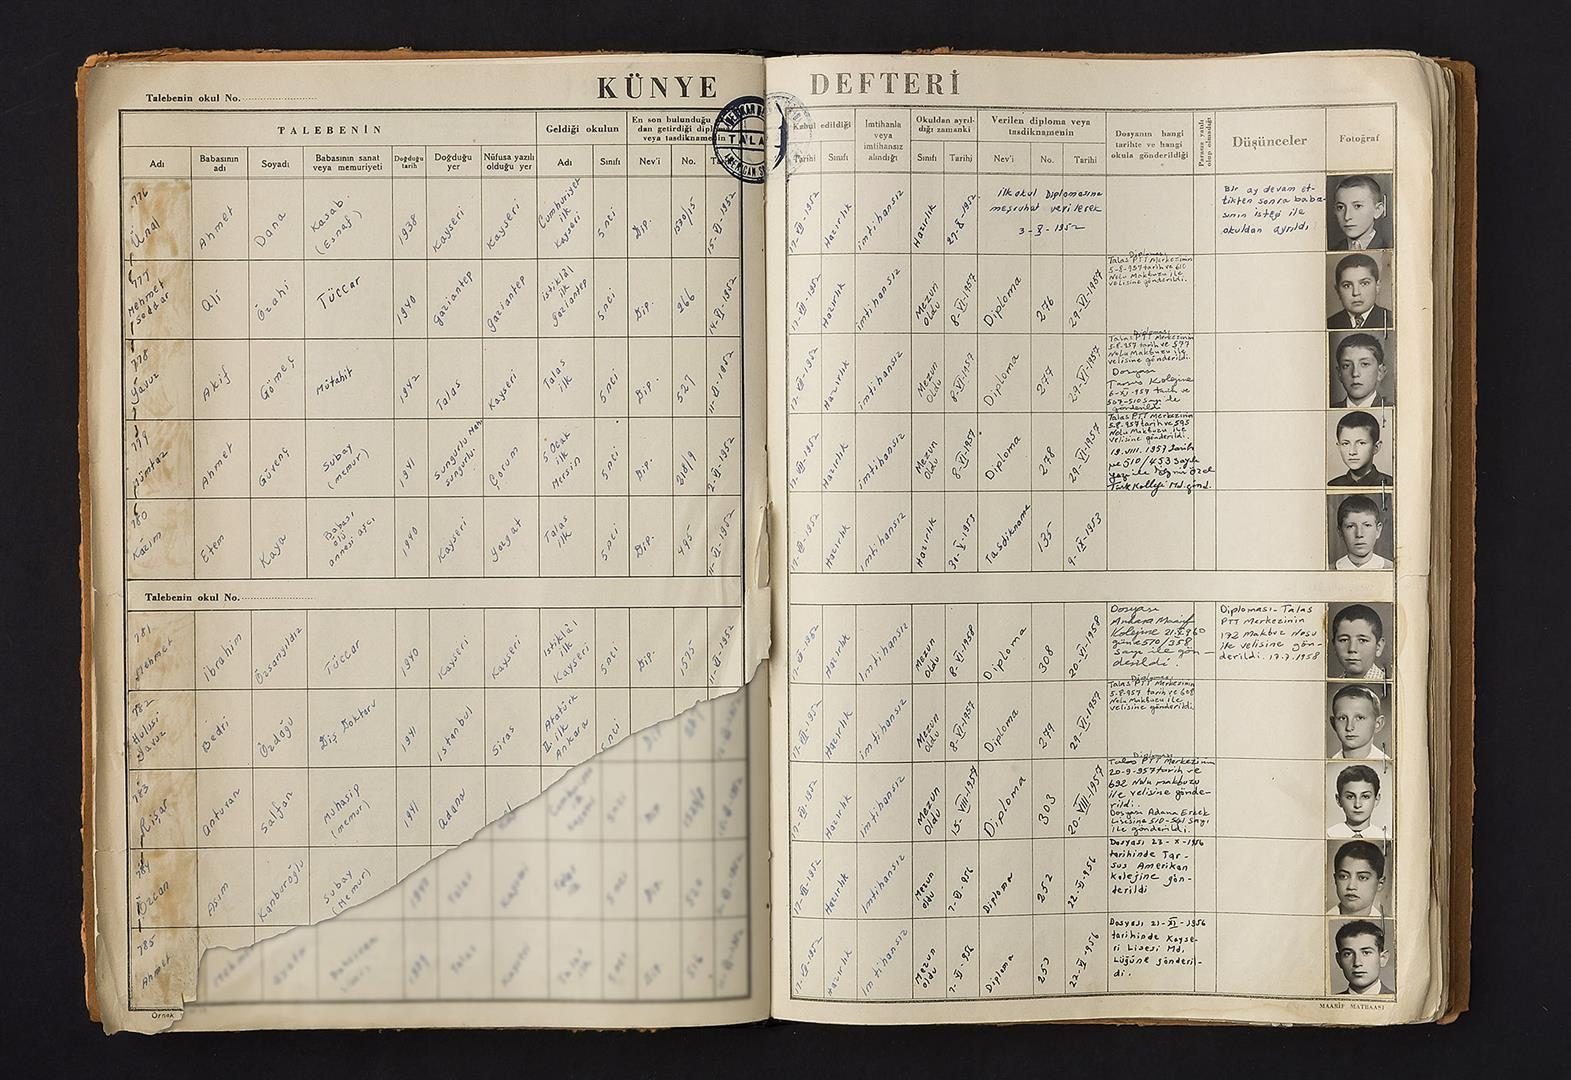 KÜNYE DEFTERİ
Talebenin okul No.
TALEBENİN
Geldiği okulun
En son bulunduğu
dan getirdiği
veya tasdiknamenin
Adı
Babasının
adı
Soyadı
Babasının sanat
veya memuriyeti
Doğduğu
tarih
Doğduğu
yer
Nüfusa yazılı
olduğu yer
Adı
Sınıfı
Nev'i
No.
TALAS
Kabul edildiği
Tarihi
Sınıfı
İmtihanla
veya
imtihansız
alındığı
Okuldan ayrıl-
dığı zamanki
Sınıfı
Tarihi
Verilen diploma veya
tasdiknamenin
Nev'i
No.
Tarihi
Dosyanın hangi
tarihte ve hangi
okula gönderildiği
Parasız yatılı
olup olmadığı
Düşünceler
Fotoğraf
776
Ünal
Ahmet
Dana
Kasab
(Esnaf)
1938
Kayseri
Kayseri
Cumhuriyet
ilk
Kayseri
5nci
Dip.
1330/15
15-VI-1952
Hazırlık
imtihansız
Hazırlık
ilkokul Diplomasına
meşruhat verilerek
3-X-1952
Bir ay devam et-
tikten sonra baba-
sının isteği ile
okuldan ayrıldı
777
Mehmet
Ali
Özahi
Tüccar
1940
Gaziantep
Gaziantep
istiklâl
ilk
Gaziantep
5nci
Dip.
266
14-VI-1952
Hazırlık
imtihansız
Mezun
oldu
8-VI-1957
Diploma
276
29-VI-1957
Diploması
Talas PTT Merkezinin
5-8-957 tarih ve 610
Nolu Makbuzu ile
velisine gönderildi.
778
Yavuz
Akif
Gömeç
Mütahit
1942
Talas
Kayseri
Talas
ilk
5nci
Dip.
527
11-VI-1952
Hazırlık
imtihansız
Mezun
Oldu
8-VI-1957
Diploma
277
29-VI-1957
Diploması
Talas PTT Merkezinin
5.8.957 tarih ve 577
Nolu Makbuzu ile
velisine gönderildi.
Dosyası
Tarsus Kolejine
6-XI-1957 tarih ve
507-510 sayı ile
gönderildi
779
Mümtaz
Ahmet
Güvenç
Subay
(memur)
1941
Sungurlu
Çorum
5 Ocak
ilk
Mersin
5nci
Dip.
218/9
2-VI-1952
Hazırlık
imtihansız
Mezun
Oldu
8-VI-1957
Diploma
278
29-VI-1957
Talas PTT Merkezinin
5.8.957 tarih ve 595
Nolu Makbuzu ile
velisine gönderildi.
19.VIII.1957 tarih
ve 510/453 sayılı
yazı ile İzmir Özel
Türk Kolleji Md. gönd.
780
Kâzım
Etem
Kaya
Babası
ölü
annesi aşçı
1940
Kayseri
Yozgat
Talas
ilk
5nci
Dip.
495
11-VI-1952
Hazırlık
imtihansız
Hazırlık
30-V-1953
Tasdikname
135
9-IX-1953
Talebenin okul No.
781
Mehmet
İbrahim
Özsarıyıldız
Tüccar
1940
Kayseri
Kayseri
istiklâl
ilk
Kayseri
5nci
Dip.
575
11-VI-1952
Hazırlık
imtihansız
Mezun
Oldu
8-VI-1958
Diploma
308
20-VI-1958
Dosyası
Ankara Maarif
Kolejine 21.3.960
günü 510/358
sayı ile gön-
derildi.
Diploması-Talas
PTT Merkezinin
172 Makbuz Nosu
ile velisine gön-
derildi. 17.7.1958
782
Hulusi
Yavuz
Bedri
Özdoğu
Diş Doktoru
1941
istanbul
Sivas
Atatürk
II. ilk
Ankara
Hazırlık
imtihansız
Mezun
oldu
8-VI-1957
Diploma
279
29-VI-1957
Diploması
Talas PTT Merkezinin
5.8.957 tarih ve 608
Nolu Makbuzu ile
velisine gönderildi.
783
Rişar
Antuvan
Saltan
Muhasip
(memur)
1941
Adana
Hazırlık
imtihansız
Mezun
Oldu
15-VIII-1957
Diploma
303
20-VIII-1957
Diploması
Talas PTT Merkezinin
20-9-957 tarih ve
692 Nolu makbuzu
ile velisine gönde-
rildi.
Dosyası Adana Erkek
Lisesine 510-591 sayı
ile gönderildi.
784
Özcan
Asım
Kanburoğlu
Subay
(Memur)
Hazırlık
imtihansız
Mezun
oldu
Diploma
252
22-VI-956
Dosyası 23-X-1956
tarihinde Tar-
sus Amerikan
Kolejine gön-
derildi
785
Ahmet
Hazırlık
imtihansız
Mezun
oldu
Diploma
253
22-VI-1956
Dosyası 21-XI-1956
tarihinde Kayse-
ri Lisesi Md.
lüğüne gönderil-
di.
Örnek
MAARİF MATBAASI